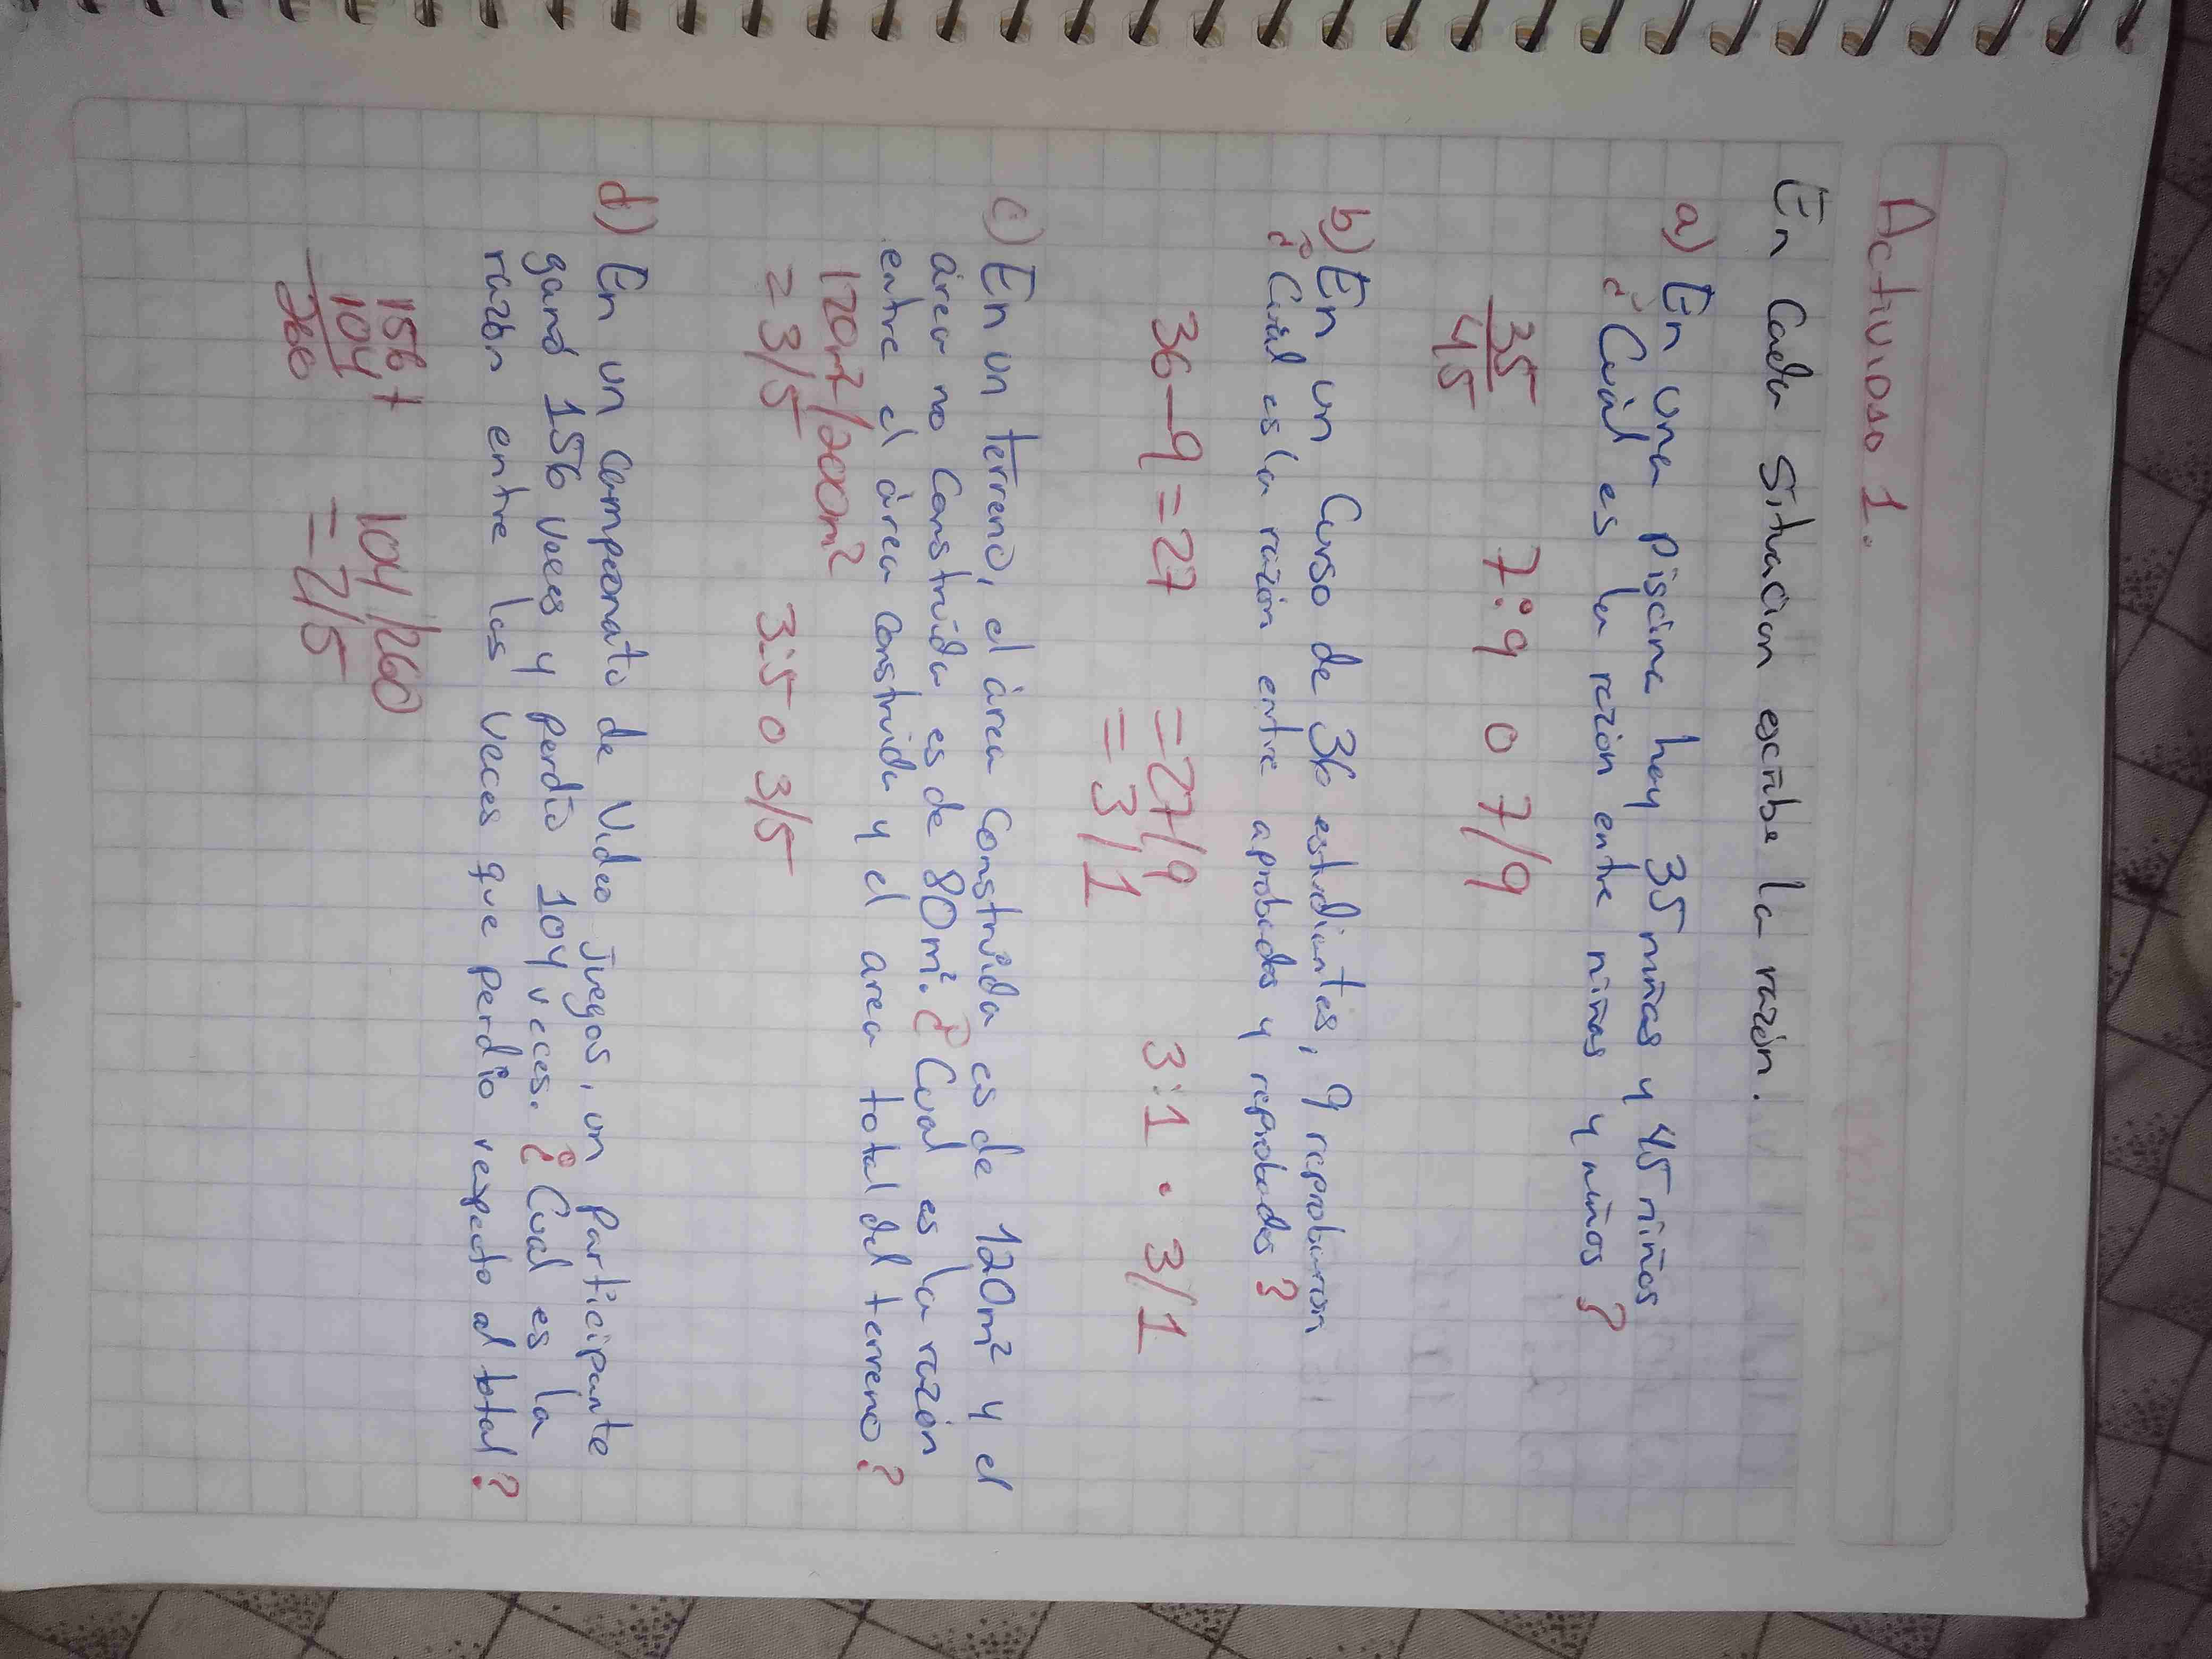 Actividad 1.
En Cada Situación escribe la razón.
a) En una piscina hay 35 niñas y 45 niños
¿Cuál es la razón entre niñas y niños?
35
45
7:9 o 7/9
b) En un Curso de 36 estudiantes, 9 reprobaron
¿Cuál es la razón entre aprobados y reprobados?
36-9=27 =27/9 3:1 · 3/1
=3/1
c) En un terreno, el área Construida es de 120m² y el
área no Construida es de 80m². ¿Cual es la razón
entre el área construida y el area total del terreno?
120m²/200m²
= 3/5 3:5 o 3/5
d) En un Campeonato de Video Juegos, un Participante
ganó 156 Veces y perdió 104 veces. ¿Cual es la
razón entre las Veces que perdió respecto al total?
156+ 104/260
104 = 2/5
260